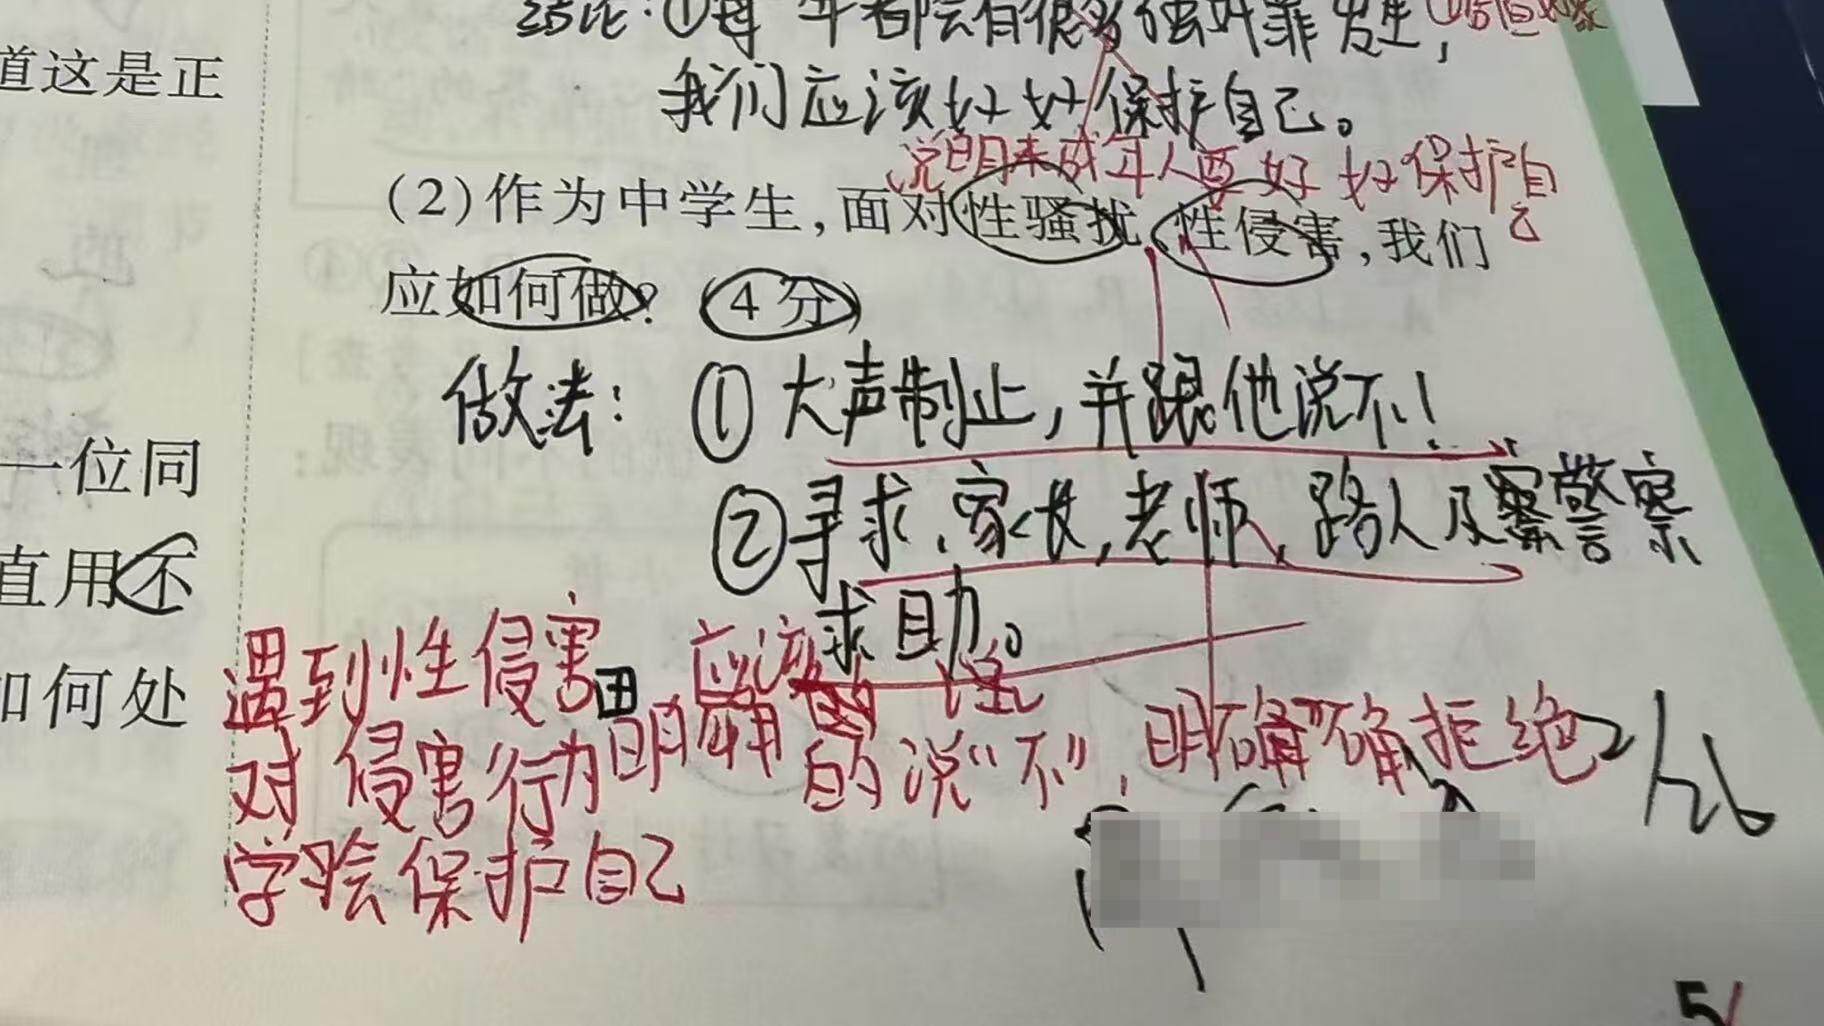 结论:①每年都会有很多强奸罪发生,
我们应该好好保护自己。
说明未成年人要好好保护自
己
道这是正
(2)作为中学生,面对性骚扰、性侵害,我们
应如何做?(4分)
做法:①大声制止,并跟他说不!
一位同
②寻求,家长,老师,路人及警察
求助。
直用不
如何处
遇到性侵害 应该
对侵害行为明确的说“不”,明确拒绝
学会保护自己
5